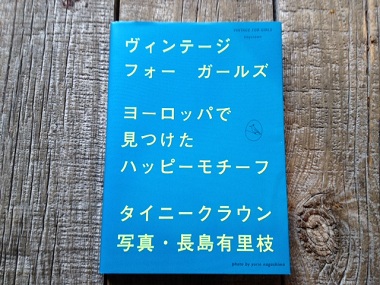 VINTAGE FOR GIRLS
ヴィンテージ
フォー ガールズ
ヨーロッパで
見つけた
ハッピーモチーフ
タイニークラウン
写真・長島有里枝
photo by yurie nagashima